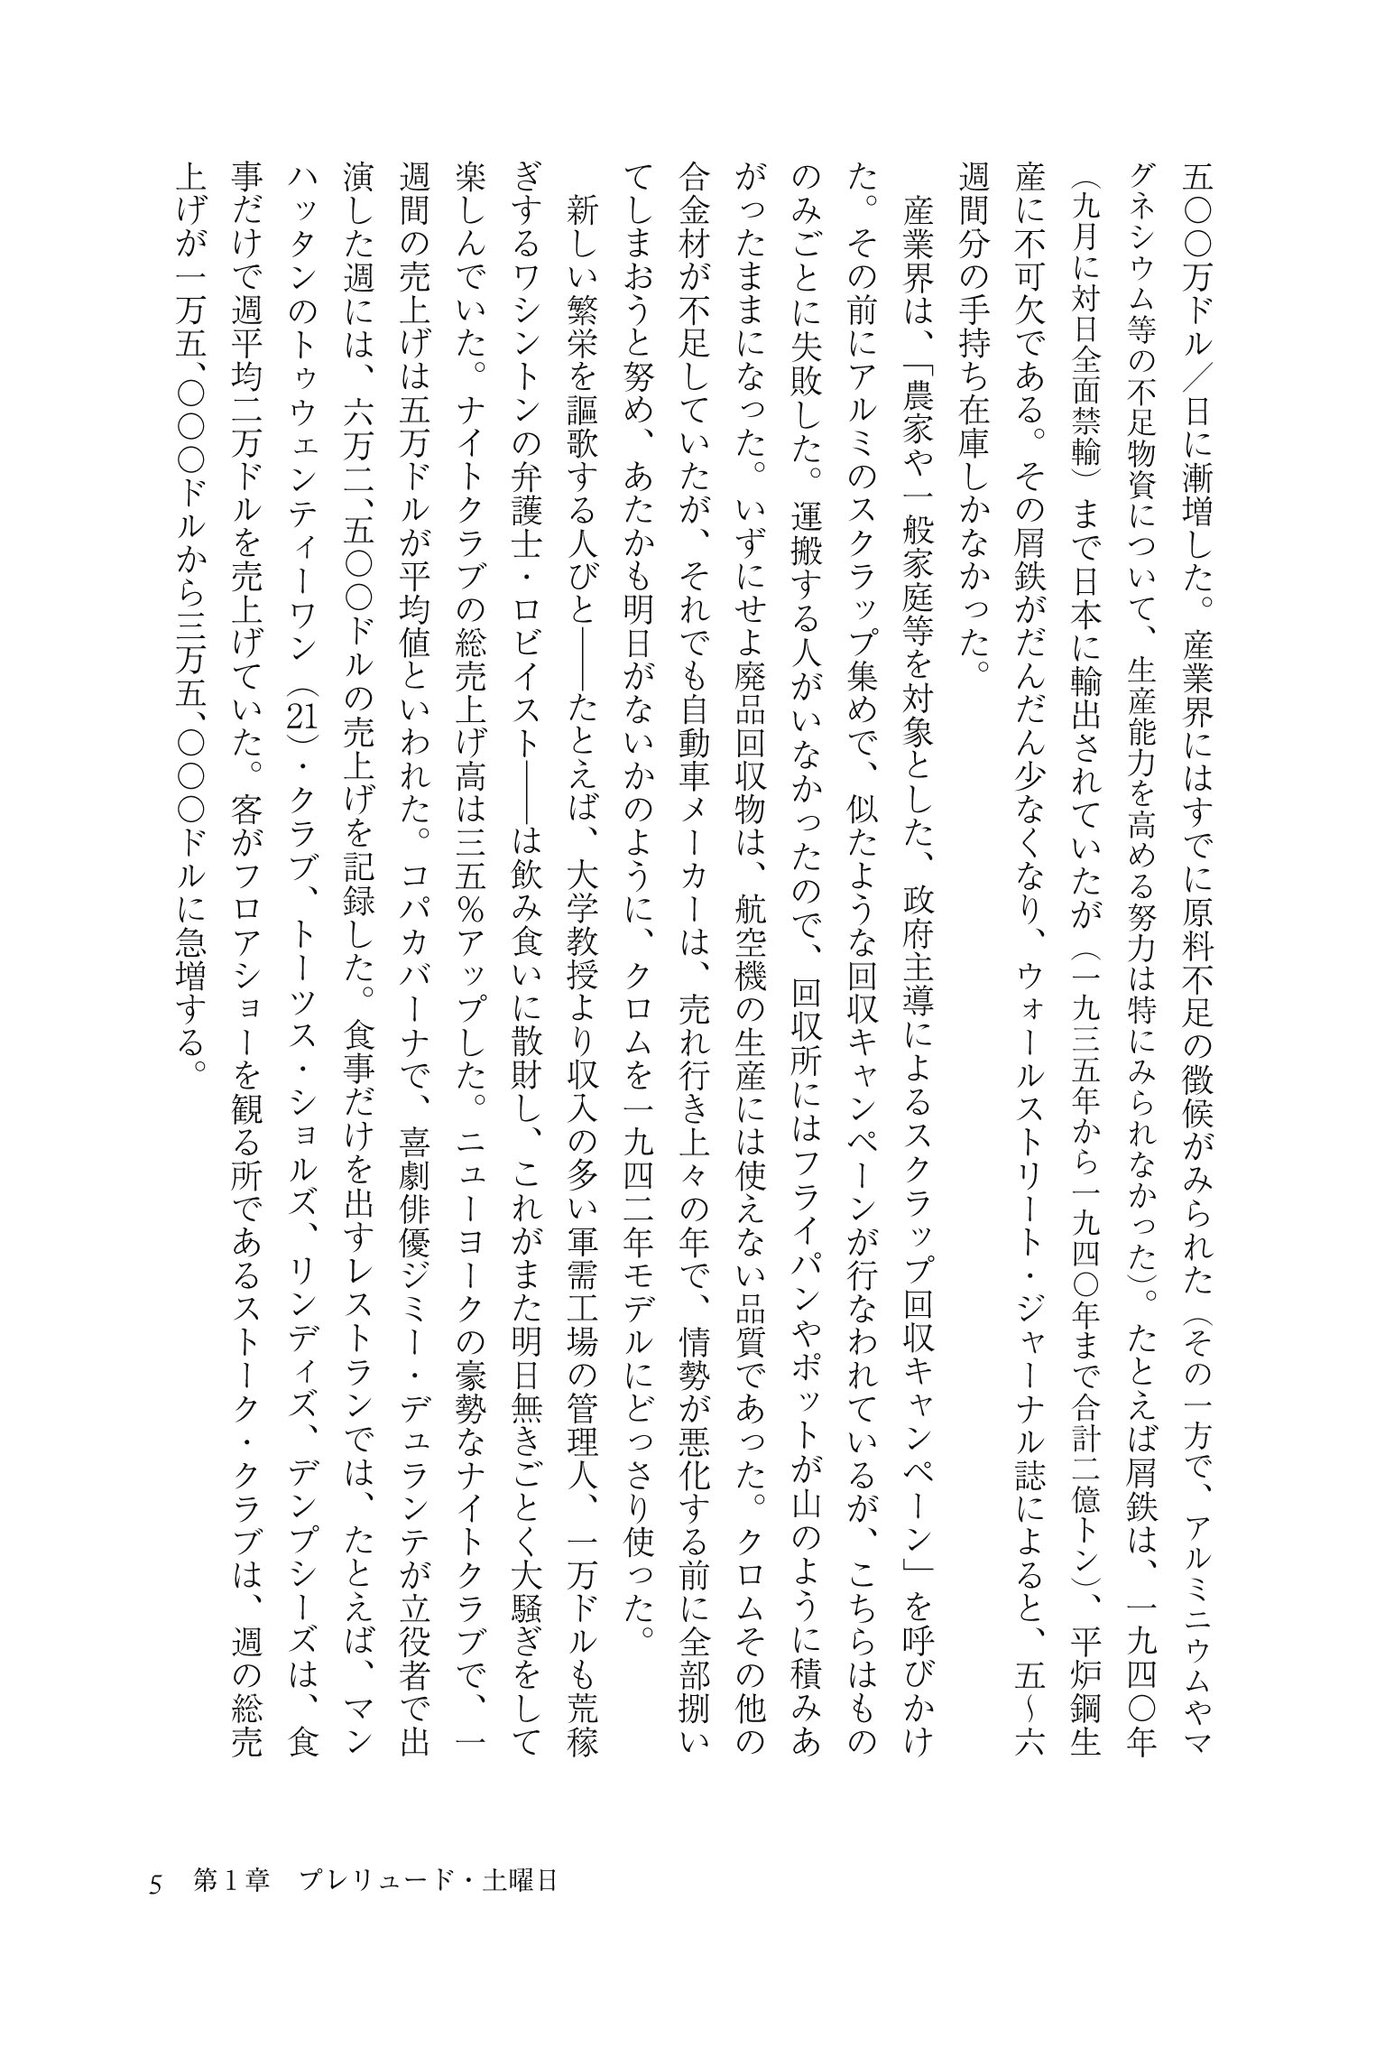 五〇〇万ドル／日に漸増した。産業界にはすでに原料不足の徴候がみられた（その一方で、アルミニウムやマ
グネシウム等の不足物資について、生産能力を高める努力は特にみられなかった）。たとえば屑鉄は、一九四〇年
（九月に対日全面禁輸）まで日本に輸出されていたが（一九三五年から一九四〇年まで合計二億トン）、平炉鋼生
産に不可欠である。その屑鉄がだんだん少なくなり、ウォールストリート・ジャーナル誌によると、五〜六
週間分の手持ち在庫しかなかった。
　産業界は、「農家や一般家庭等を対象とした、政府主導によるスクラップ回収キャンペーン」を呼びかけ
た。その前にアルミのスクラップ集めで、似たような回収キャンペーンが行なわれているが、こちらはもの
のみごとに失敗した。運搬する人がいなかったので、回収所にはフライパンやポットが山のように積みあ
がったままになった。いずにせよ廃品回収物は、航空機の生産には使えない品質であった。クロムその他の
合金材が不足していたが、それでも自動車メーカーは、売れ行き上々の年で、情勢が悪化する前に全部捌い
てしまおうと努め、あたかも明日がないかのように、クロムを一九四二年モデルにどっさり使った。
　新しい繁栄を謳歌する人びと――たとえば、大学教授より収入の多い軍需工場の管理人、一万ドルも荒稼
ぎするワシントンの弁護士・ロビイスト――は飲み食いに散財し、これがまた明日無きごとく大騒ぎをして
楽しんでいた。ナイトクラブの総売上げ高は三五％アップした。ニューヨークの豪勢なナイトクラブで、一
週間の売上げは五万ドルが平均値といわれた。コパカバーナで、喜劇俳優ジミー・デュランテが立役者で出
演した週には、六万二、五〇〇ドルの売上げを記録した。食事だけを出すレストランでは、たとえば、マン
ハッタンのトゥウェンティーワン（21）・クラブ、トーツス・ショルズ、リンディズ、デンプシーズは、食
事だけで週平均二万ドルを売上げていた。客がフロアショーを観る所であるストーク・クラブは、週の総売
上げが一万五、〇〇〇ドルから三万五、〇〇〇ドルに急増する。
5　第1章　プレリュード・土曜日